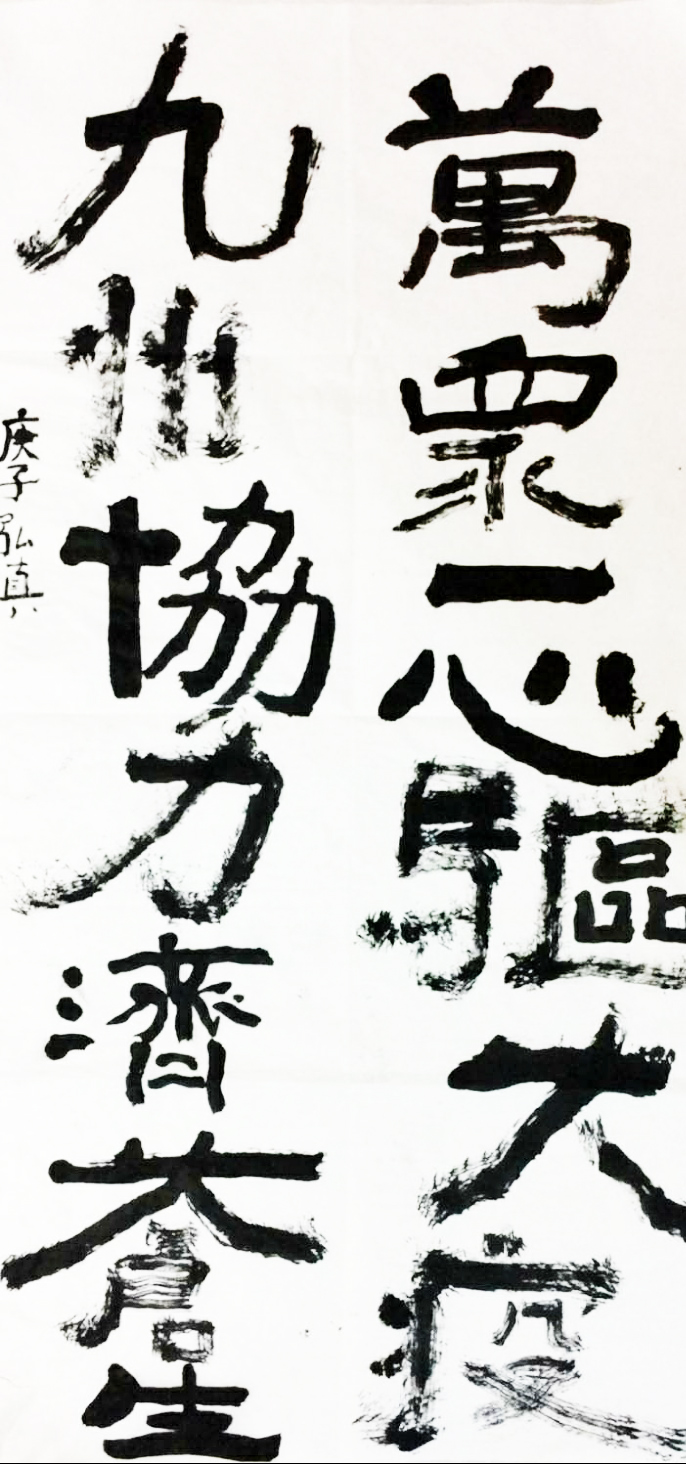 萬眾一心驅大疫
九州協力濟蒼生
庚子弘真